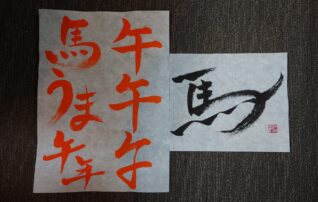 午午午
馬うま午年
馬